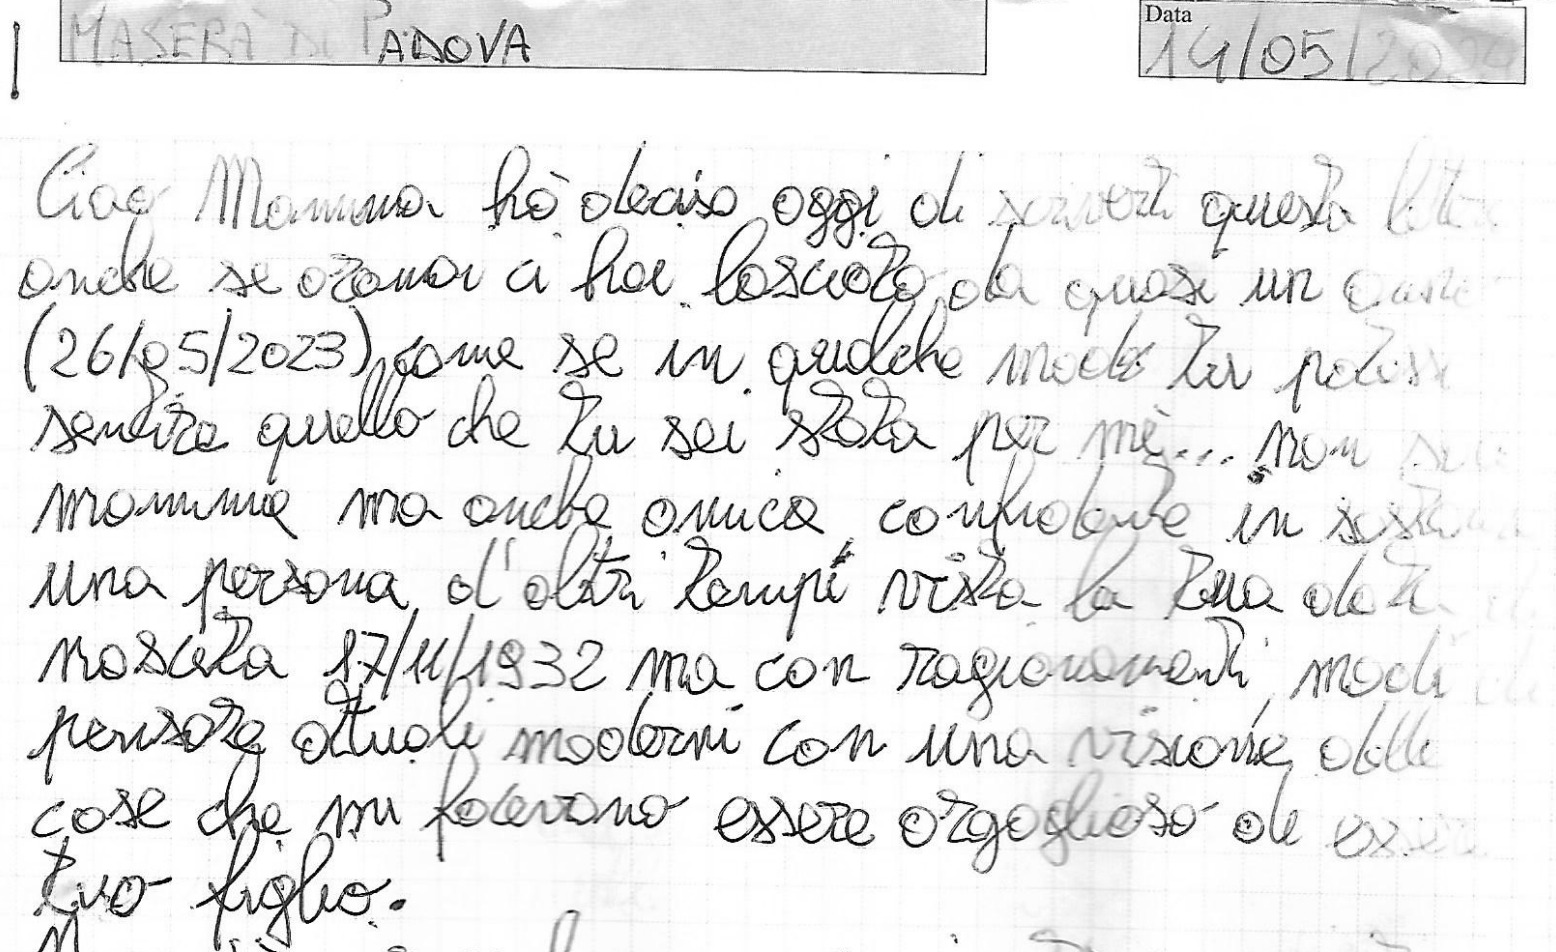 MASERÀ DI PADOVA
Data
14/05/2024
Ciao Mamma hò deciso oggi di scriverti questa letter
anche se oramai ci hai lasciato da quasi un anno
(26/05/2023) come se in qualche modo tu potessi
sentire quello che tu sei stata per mè... non solo
mamma ma anche amica, confidente in sostanza
una persona d'altri tempi vista la tua data di
nascita 17/11/1932 ma con ragionamenti, modi di
pensare attuali moderni con una visione delle
cose che mi facevano essere orgoglioso di essere
tuo figlio.